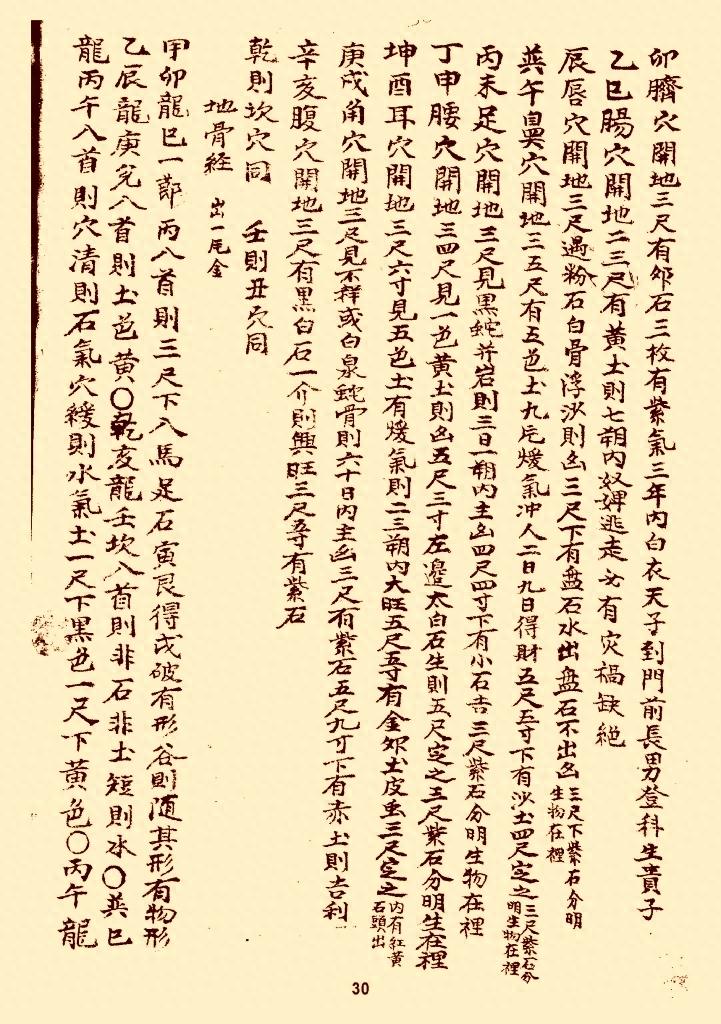 卯臍穴開地三尺有卵石三枚有紫氣三年內白衣天子到門前長男登科生貴子
乙巳腸穴開地二三尺有黃土則七朔內奴婢逃走必有灾禍缺絶
辰唇穴開地三尺遇粉石白骨浮沙則凶三尺下有盤石水出盤石不出凶三尺下紫石分明生物在裡
巽午鼻穴開地三五尺有五色土九尺煖氣冲人二日九日得財五尺五寸下有沙土四尺定之三尺紫石分明生物在裡
丙未足穴開地三尺見黑蛇并岩則三日一朔內主凶四尺四寸下有小石吉三尺紫石分明生物在裡
丁申腰穴開地三四尺見一色黃土則凶五尺三寸左邊太白石生則五尺定之三尺紫石分明生在裡
坤酉耳穴開地三尺六寸見五色土有煖氣則二三朔內大旺五尺有金卵土皮重三尺定之內有紅黃石頭出
庚戌角穴開地三尺見不祥或白泉蛇骨則六十日內主凶三尺有紫石五尺九寸下有赤土則吉利
辛亥腹穴開地三尺有黑白石一介則興旺三尺有紫石
乾則坎穴同 壬則丑穴同
地骨経 出一片金
甲卯龍巳一節丙八首則三尺下八馬足石寅艮得戌破有形谷則随其形有物形
乙辰龍庚兌八首則土色黃〇乾亥龍壬坎八首則非石非土短則水〇巽巳
龍丙午八首則穴清則石氣穴緩則水氣土一尺下黑色一尺下黃色〇丙午龍
30